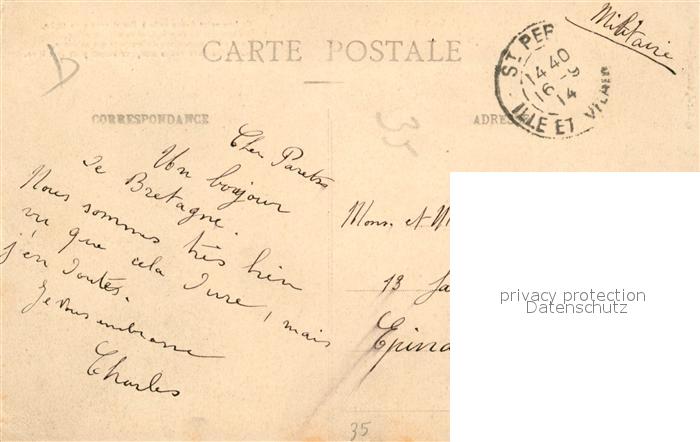 Militaire
CARTE POSTALE
ST PER
14 40
16 - 9
14
ILLE ET VILAINE
CORRESPONDANCE
ADRES
35
Cher Parents
Un bonjour
de Bretagne.
Nous sommes très bien
vu que cela dure, mais
j'en doutes.
Je vous embrasse
Charles
Mons. et M
13
Epina
privacy protection
Datenschutz
35